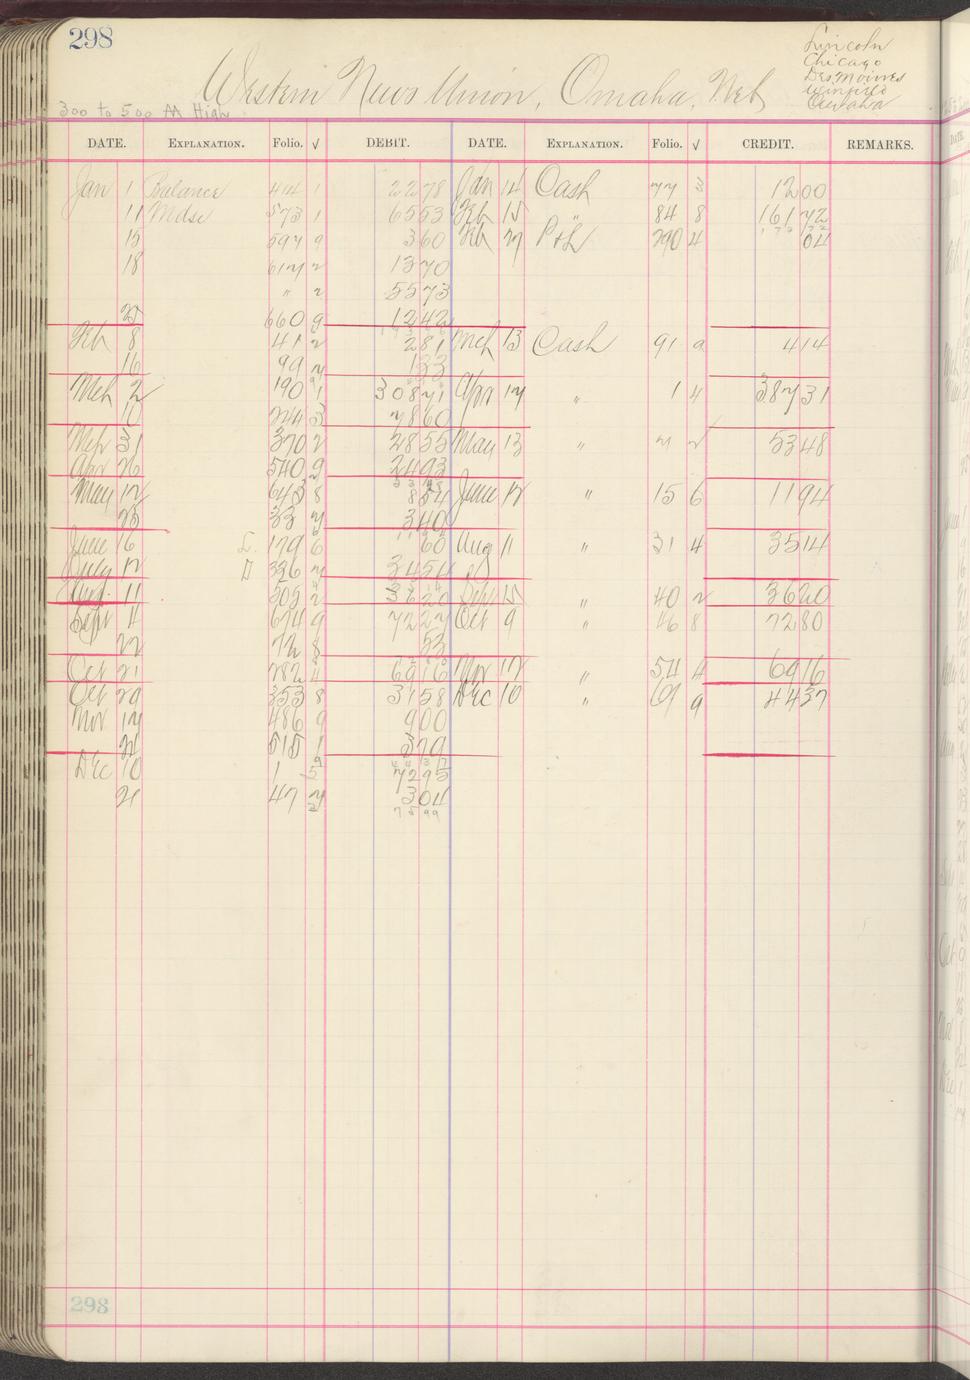 298
Lincoln
Chicago
Des Moines
Winifred
Omaha
Western News Union, Omaha, Neb
300 to 500 AA High
DATE. EXPLANATION. Folio. √ DEBIT. DATE. EXPLANATION. Folio. √ CREDIT. REMARKS.
Jan 1 Balance 444 1 22 78 Jan 14 Cash 77 3 12 00
11 Mdse 573 1 65 53 Feb 15 " 84 8 161 72
15 597 9 3 60 Feb 27 P & L 290 4 04
18 617 2 13 70
" 2 55 73
25 660 9 12 42
Feb 8 41 2 2 81 Mch 13 Cash 91 9 4 14
16 99 7 1 33
Mch 2 190 1 308 71 Apr 17 " 1 4 387 31
10 244 3 78 60
Mch 31 370 2 28 55 May 13 " 7 2 53 48
Apr 26 540 9 24 93
May 12 643 8 8 54 June 12 " 15 6 11 94
25 33 7 3 40
June 16 L. 179 6 60 Aug 11 " 31 4 35 14
July 12 D 326 7 34 54
Aug. 11 505 2 36 20 Sept 15 " 40 2 36 20
Sept 4 674 9 72 27 Oct 9 " 46 8 72 80
22 72 8 53
Oct 21 282 4 69 16 Nov 17 " 54 4 69 16
Oct 29 353 8 31 58 Dec 10 " 61 9 44 37
Nov 17 486 9 9 00
21 515 1 3 79
Dec 10 1 5 72 95
21 47 7 3 04
75 99
298